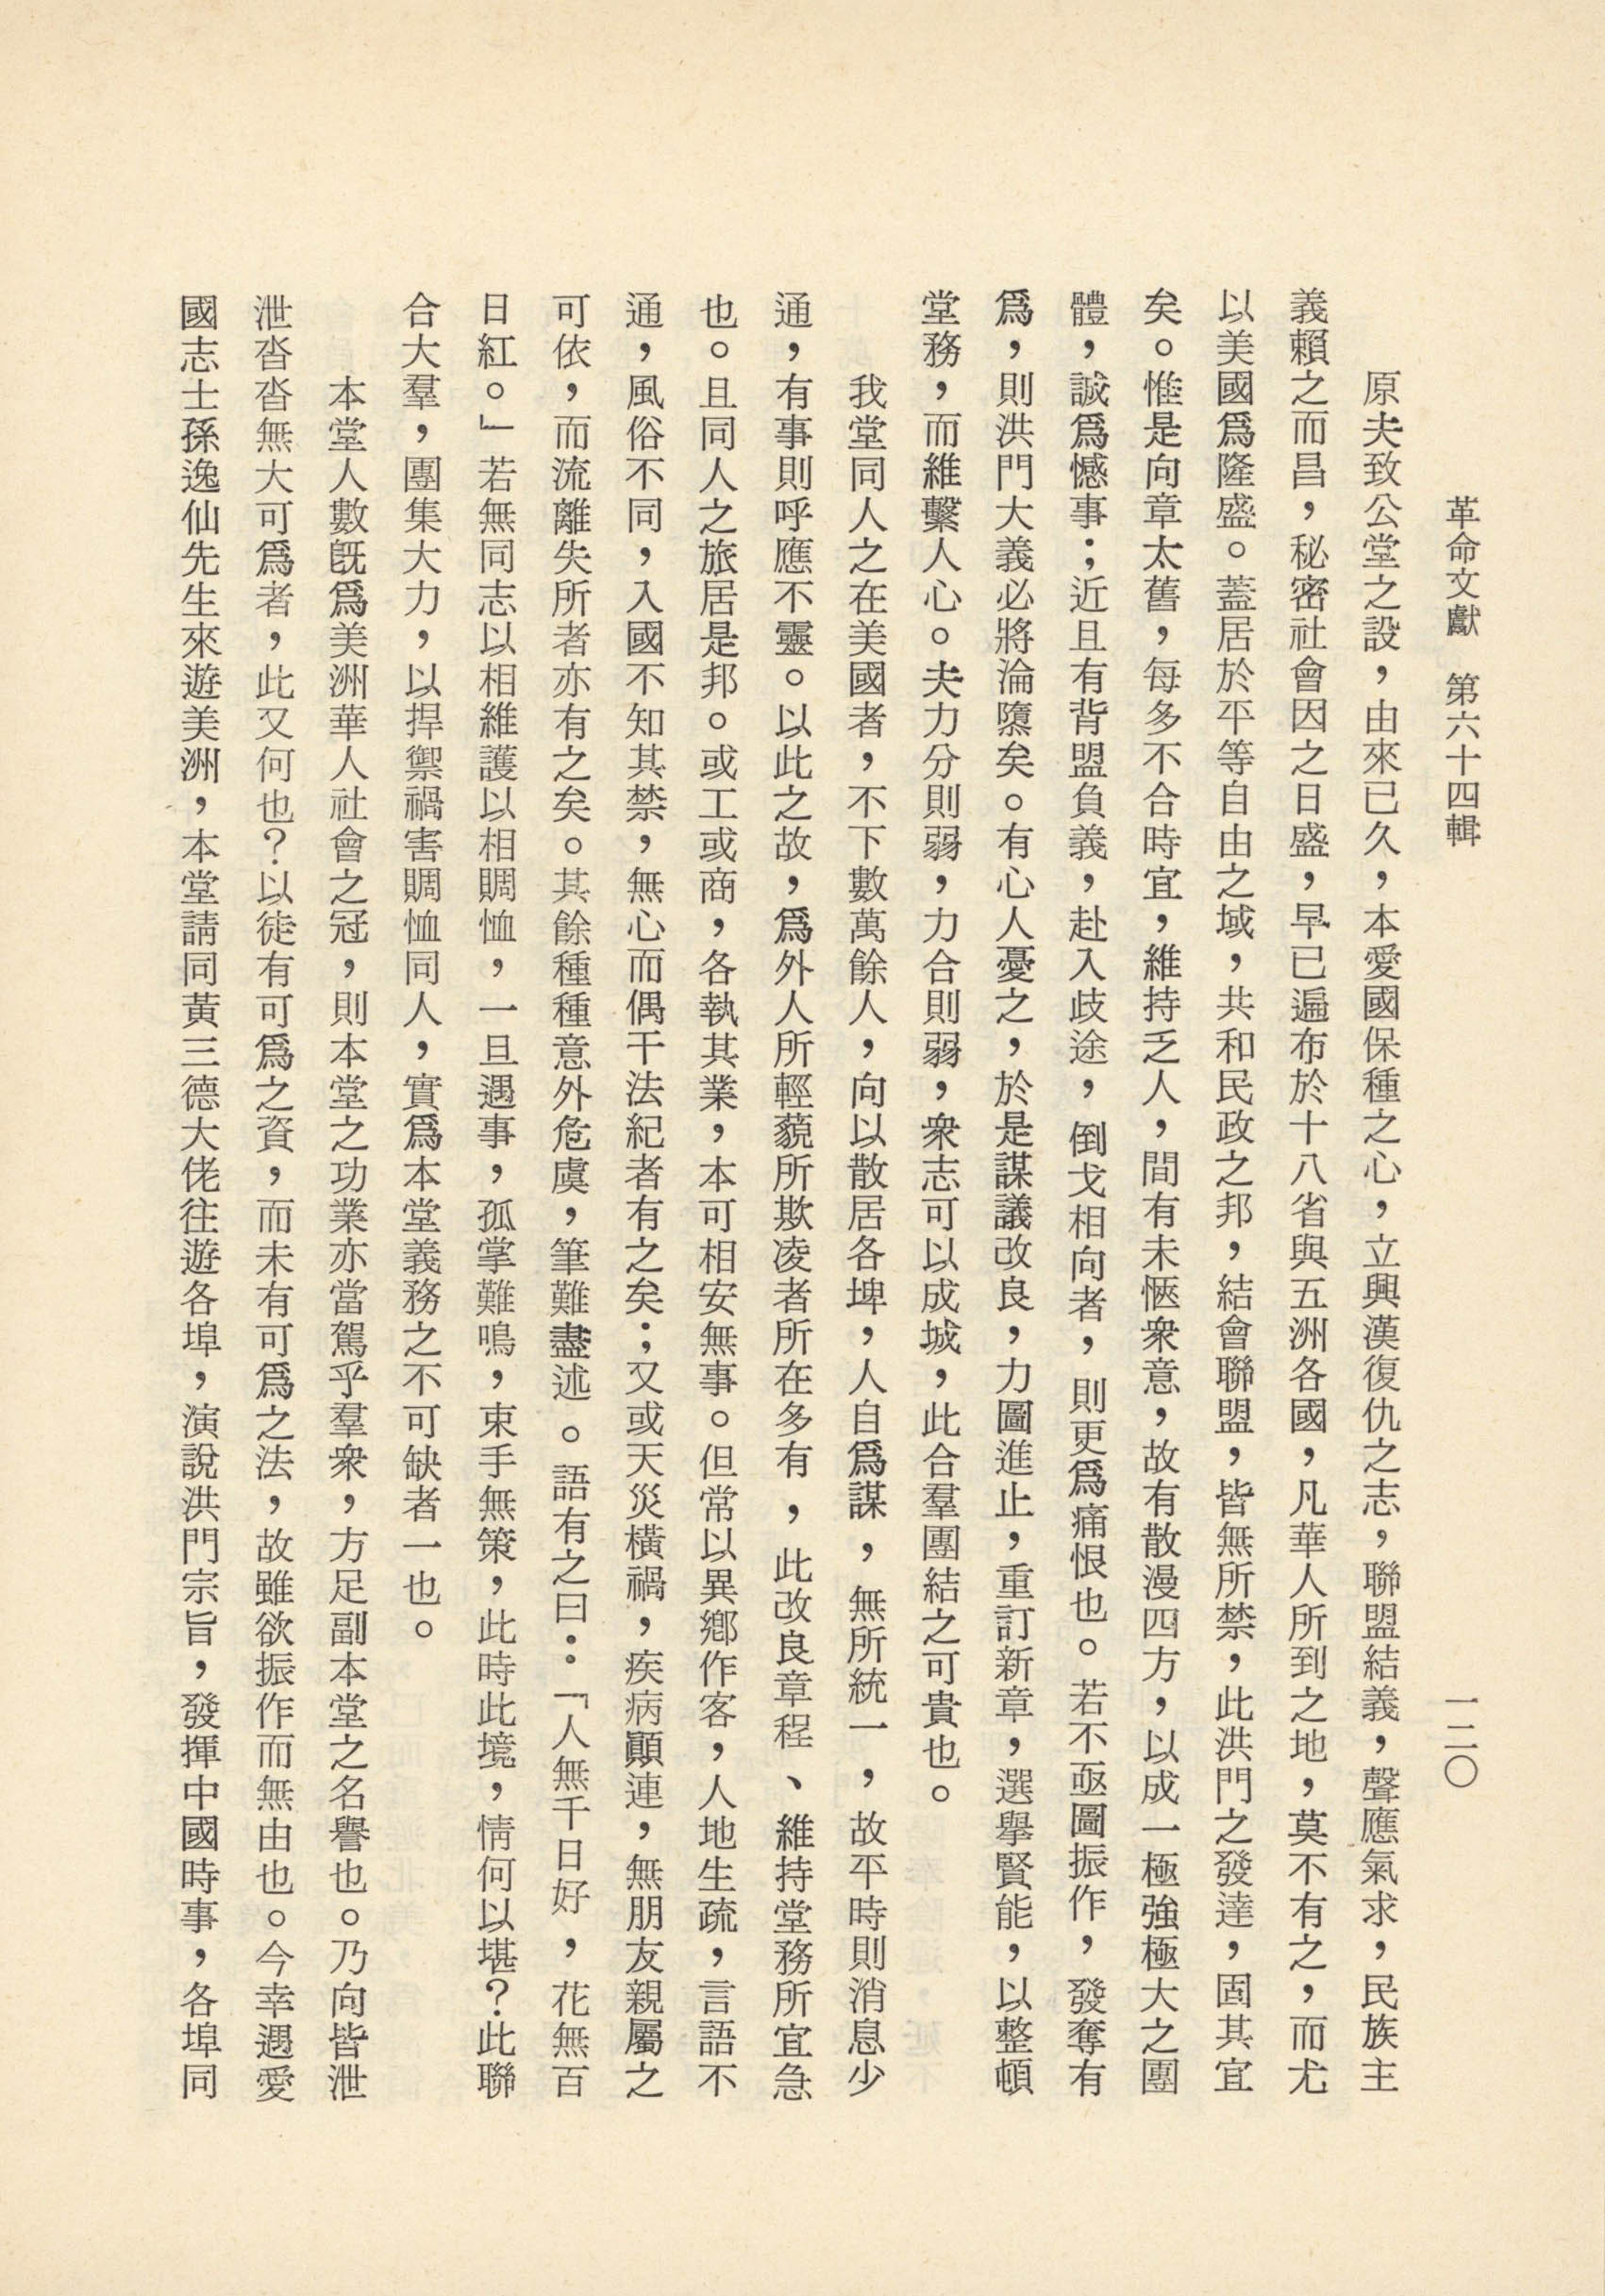 革命文獻　第六十四輯
一二〇
原夫致公堂之設，由來已久，本愛國保種之心，立興漢復仇之志，聯盟結義，聲應氣求，民族主
義賴之而昌，秘密社會因之日盛，早已遍布於十八省與五洲各國，凡華人所到之地，莫不有之，而尤
以美國爲隆盛。蓋居於平等自由之域，共和民政之邦，結會聯盟，皆無所禁，此洪門之發達，固其宜
矣。惟是向章太舊，每多不合時宜，維持乏人，間有未愜衆意，故有散漫四方，以成一極強極大之團
體，誠爲憾事；近且有背盟負義，赴入歧途，倒戈相向者，則更爲痛恨也。若不亟圖振作，發奪有
爲，則洪門大義必將淪隳矣。有心人憂之，於是謀議改良，力圖進止，重訂新章，選擧賢能，以整頓
堂務，而維繫人心。夫力分則弱，力合則弱，衆志可以成城，此合羣團結之可貴也。
我堂同人之在美國者，不下數萬餘人，向以散居各埤，人自爲謀，無所統一，故平時則消息少
通，有事則呼應不靈。以此之故，爲外人所輕藐所欺凌者所在多有，此改良章程、維持堂務所宜急
也。且同人之旅居是邦。或工或商，各執其業，本可相安無事。但常以異鄉作客，人地生疏，言語不
通，風俗不同，入國不知其禁，無心而偶干法紀者有之矣；又或天災橫禍，疾病顚連，無朋友親屬之
可依，而流離失所者亦有之矣。其餘種種意外危虞，筆難盡述。語有之曰：「人無千日好，花無百
日紅。」若無同志以相維護以相賙恤，一旦遇事，孤掌難鳴，束手無策，此時此境，情何以堪？此聯
合大羣，團集大力，以捍禦禍害賙恤同人，實爲本堂義務之不可缺者一也。
本堂人數旣爲美洲華人社會之冠，則本堂之功業亦當駕乎羣衆，方足副本堂之名譽也。乃向皆泄
泄沓沓無大可爲者，此又何也？以徒有可爲之資，而未有可爲之法，故雖欲振作而無由也。今幸遇愛
國志士孫逸仙先生來遊美洲，本堂請同黃三德大佬往遊各埠，演說洪門宗旨，發揮中國時事，各埠同